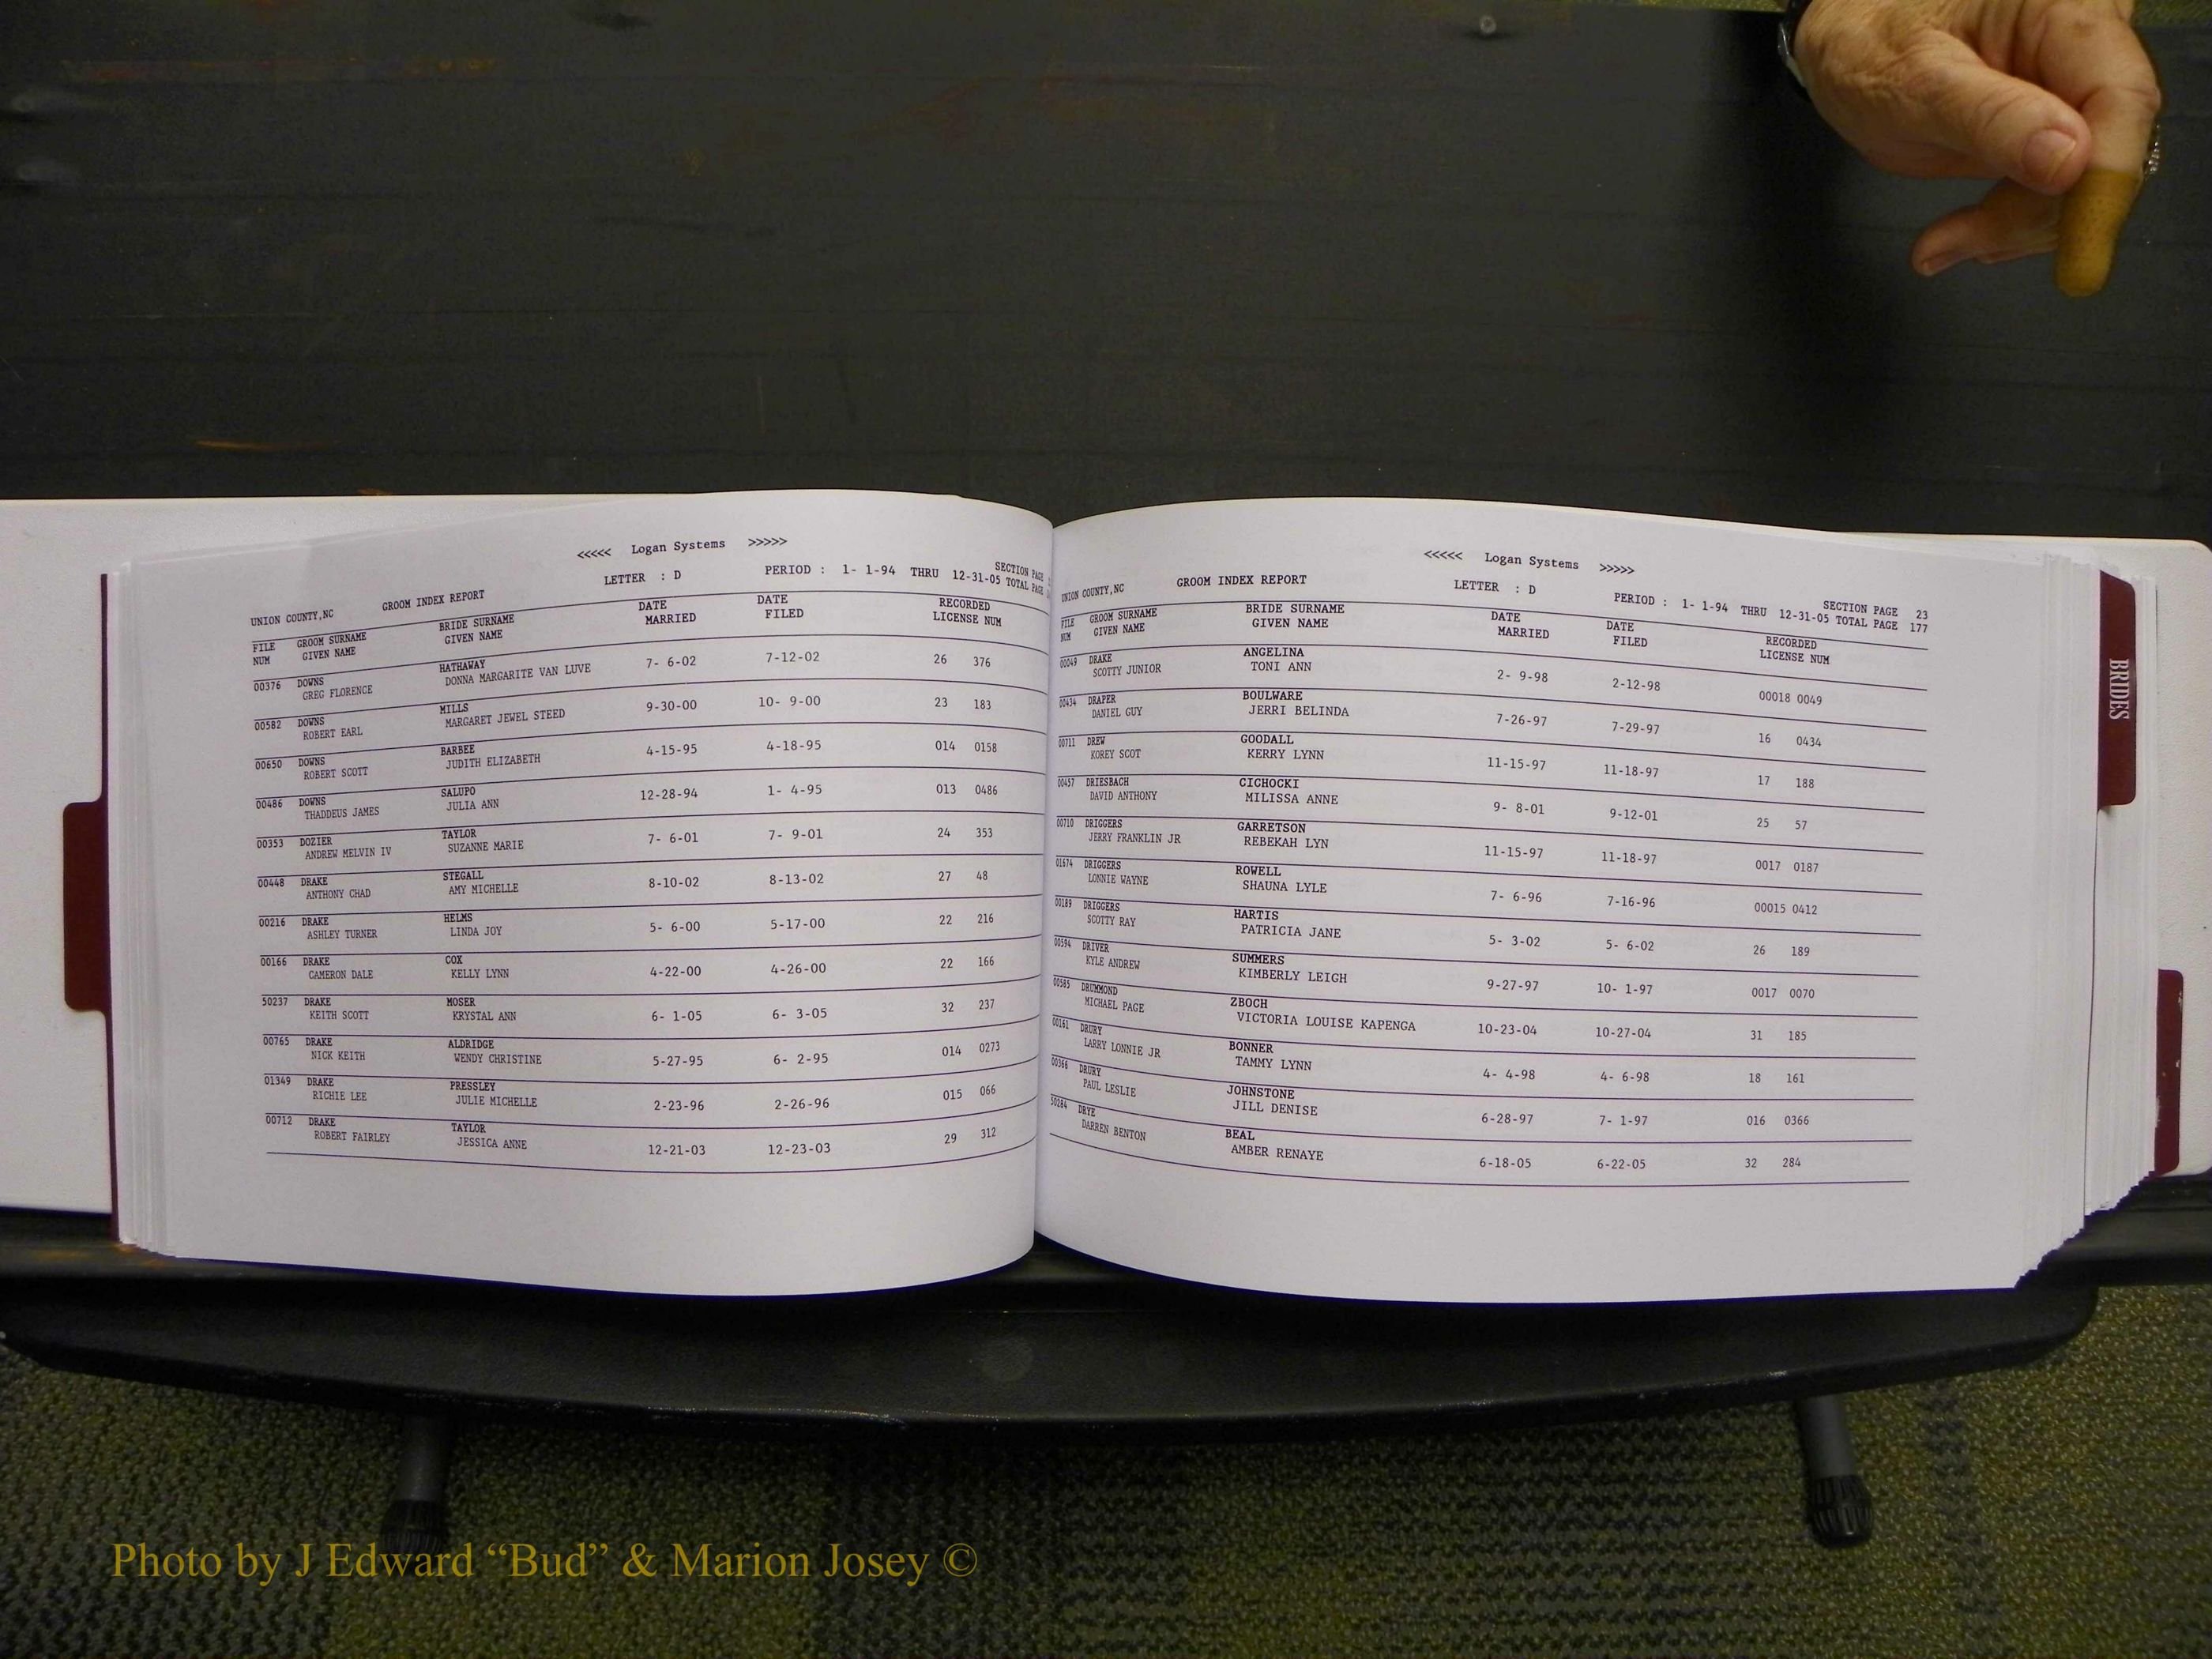 <<<<< Logan Systems >>>>>
UNION COUNTY,NC GROOM INDEX REPORT LETTER : D PERIOD : 1- 1-94 THRU 12-31-05 SECTION PAGE
TOTAL PAGE
FILE GROOM SURNAME BRIDE SURNAME DATE DATE RECORDED
NUM GIVEN NAME GIVEN NAME MARRIED FILED LICENSE NUM
00376 DOWNS HATHAWAY 7- 6-02 7-12-02 26 376
GREG FLORENCE DONNA MARGARITE VAN LUVE
00582 DOWNS MILLS 9-30-00 10- 9-00 23 183
ROBERT EARL MARGARET JEWEL STEED
00650 DOWNS BARBEE 4-15-95 4-18-95 014 0158
ROBERT SCOTT JUDITH ELIZABETH
00486 DOWNS SALUPO 12-28-94 1- 4-95 013 0486
THADDEUS JAMES JULIA ANN
00353 DOZIER TAYLOR 7- 6-01 7- 9-01 24 353
ANDREW MELVIN IV SUZANNE MARIE
00448 DRAKE STEGALL 8-10-02 8-13-02 27 48
ANTHONY CHAD AMY MICHELLE
00216 DRAKE HELMS 5- 6-00 5-17-00 22 216
ASHLEY TURNER LINDA JOY
00166 DRAKE COX 4-22-00 4-26-00 22 166
CAMERON DALE KELLY LYNN
50237 DRAKE MOSER 6- 1-05 6- 3-05 32 237
KEITH SCOTT KRYSTAL ANN
00765 DRAKE ALDRIDGE 5-27-95 6- 2-95 014 0273
NICK KEITH WENDY CHRISTINE
01349 DRAKE PRESSLEY 2-23-96 2-26-96 015 066
RICHIE LEE JULIE MICHELLE
00712 DRAKE TAYLOR 12-21-03 12-23-03 29 312
ROBERT FAIRLEY JESSICA ANNE
<<<<< Logan Systems >>>>>
UNION COUNTY,NC GROOM INDEX REPORT LETTER : D PERIOD : 1- 1-94 THRU 12-31-05 SECTION PAGE 23
TOTAL PAGE 177
FILE GROOM SURNAME BRIDE SURNAME DATE DATE RECORDED
NUM GIVEN NAME GIVEN NAME MARRIED FILED LICENSE NUM
00049 DRAKE ANGELINA 2- 9-98 2-12-98 00018 0049
SCOTTY JUNIOR TONI ANN
00434 DRAPER BOULWARE 7-26-97 7-29-97 16 0434
DANIEL GUY JERRI BELINDA
00711 DREW GOODALL 11-15-97 11-18-97 17 188
KOREY SCOT KERRY LYNN
00457 DRIESBACH CICHOCKI 9- 8-01 9-12-01 25 57
DAVID ANTHONY MILISSA ANNE
00710 DRIGGERS GARRETSON 11-15-97 11-18-97 0017 0187
JERRY FRANKLIN JR REBEKAH LYN
01674 DRIGGERS ROWELL 7- 6-96 7-16-96 00015 0412
LONNIE WAYNE SHAUNA LYLE
00189 DRIGGERS HARTIS 5- 3-02 5- 6-02 26 189
SCOTTY RAY PATRICIA JANE
00594 DRIVER SUMMERS 9-27-97 10- 1-97 0017 0070
KYLE ANDREW KIMBERLY LEIGH
00585 DRUMMOND ZBOCH 10-23-04 10-27-04 31 185
MICHAEL PAGE VICTORIA LOUISE KAPENGA
00161 DRURY BONNER 4- 4-98 4- 6-98 18 161
LARRY LONNIE JR TAMMY LYNN
00366 DRURY JOHNSTONE 6-28-97 7- 1-97 016 0366
PAUL LESLIE JILL DENISE
50284 DRYE BEAL 6-18-05 6-22-05 32 284
DARREN BENTON AMBER RENAYE
BRIDES
Photo by J Edward “Bud” & Marion Josey ©